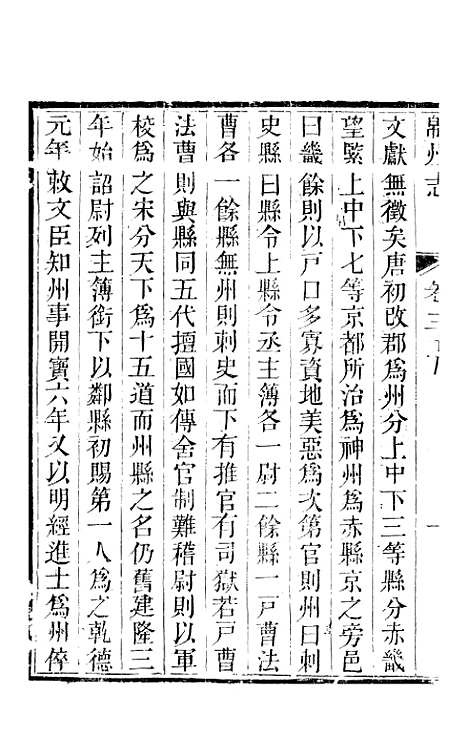 州志
卷三
文獻無徵矣唐初改郡爲州分上中下三等縣分赤畿
望緊上中下七等京都所治爲神州爲赤縣京之旁邑
曰畿餘則以戸口多寡資地美惡爲次第官則州曰刺
史縣曰縣令上縣令丞主簿各一尉二餘縣一戸曹法
曹各一餘縣無州則刺史而下有推官有司獄若戸曹
法曹則與縣同五代擅國如傳舍官制難稽尉則以軍
校爲之宋分天下爲十五道而州縣之名仍舊建隆三
年始詔尉列主簿銜下以鄰縣初賜第一人爲之乾德
元年敕文臣知州事開寶六年又以明經進士爲州倅